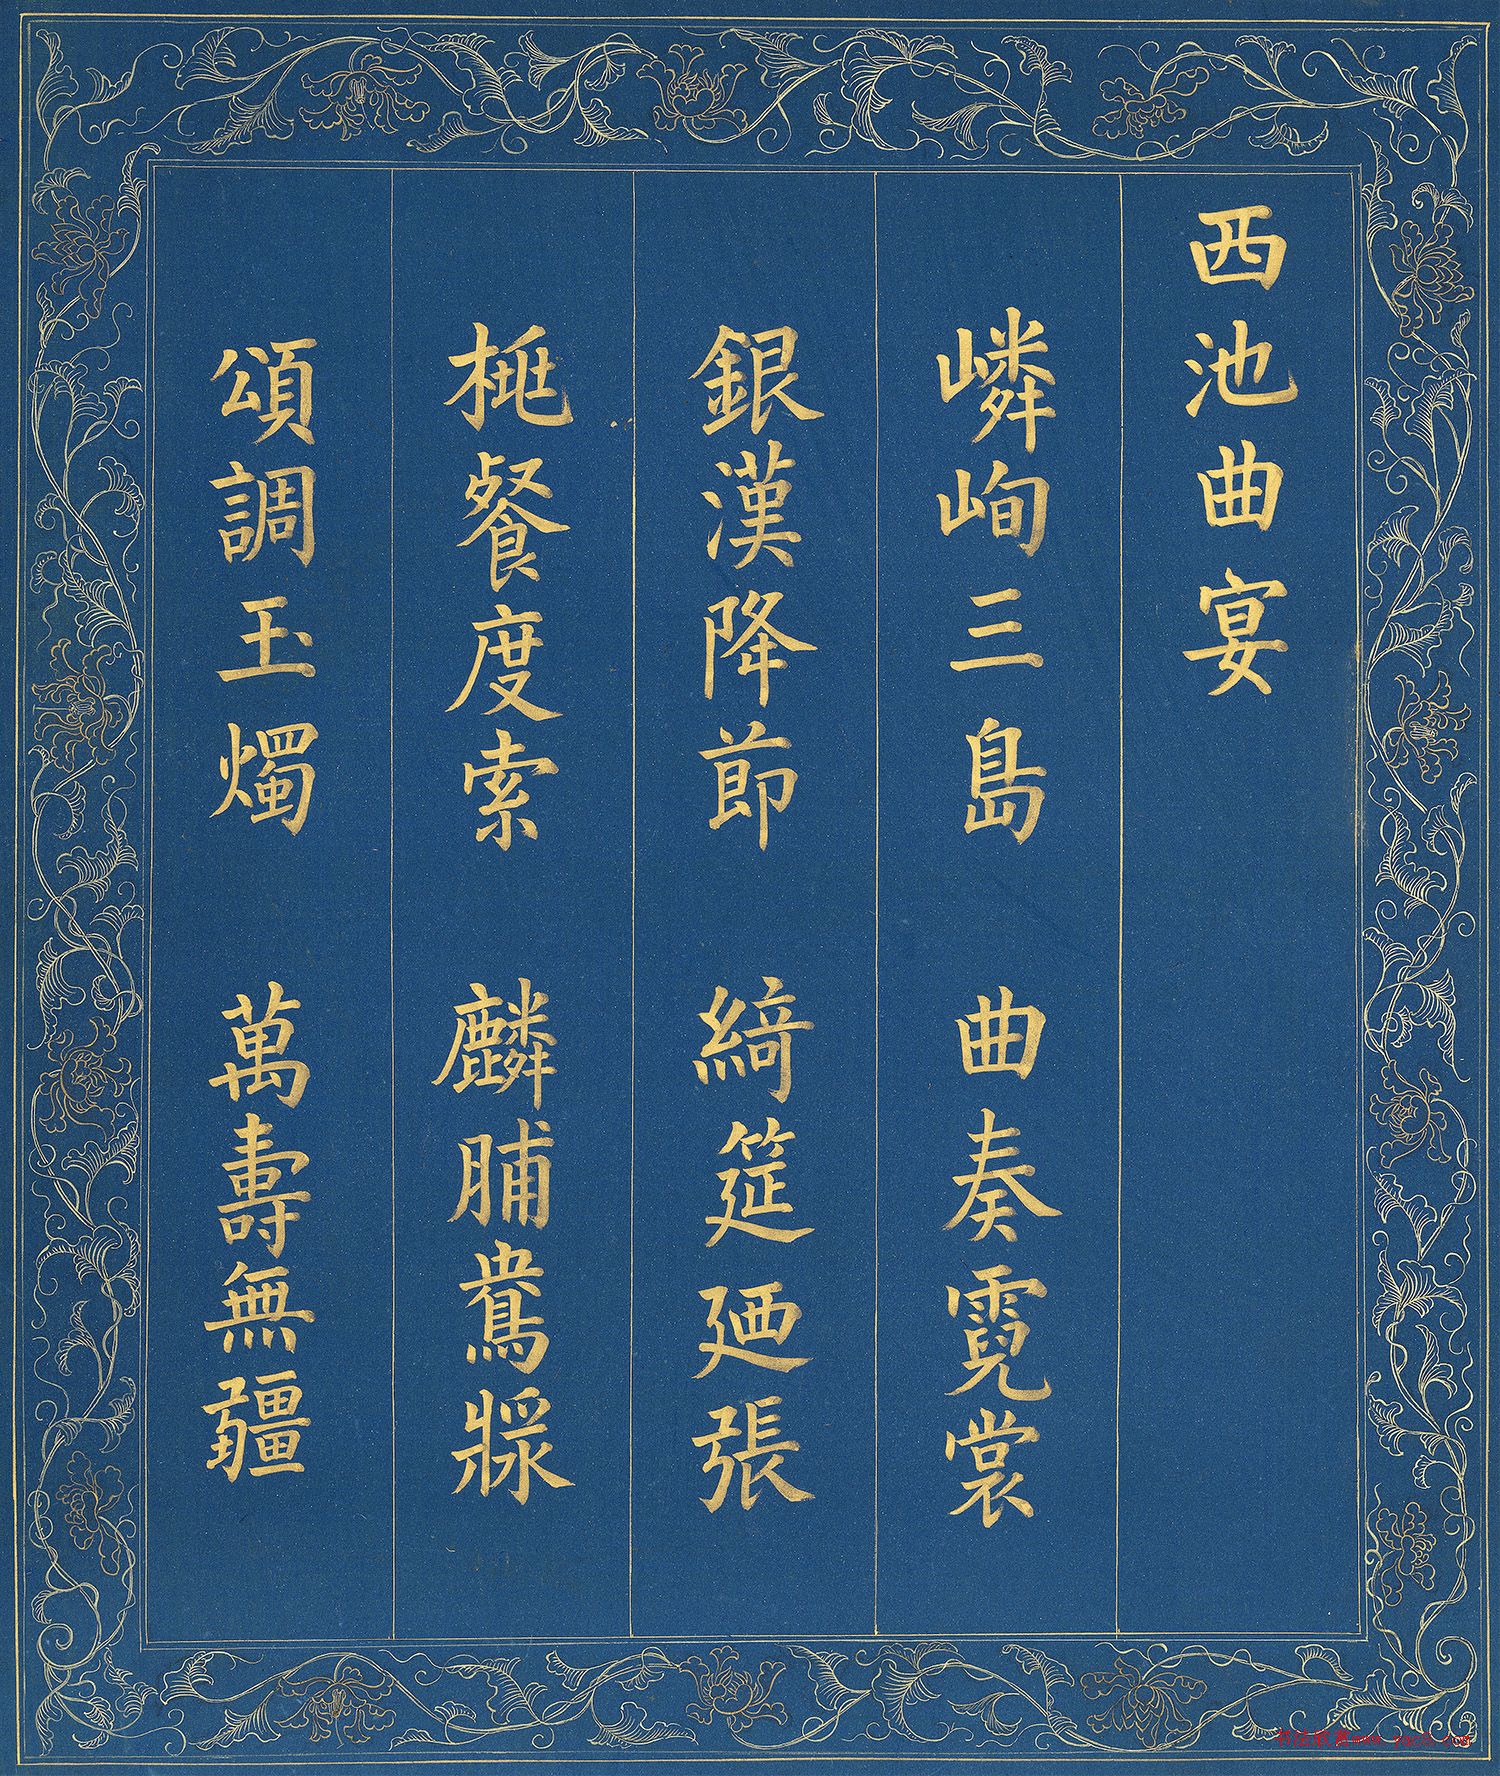 西池曲宴
嶙峋三島　曲奏霓裳
銀漢降節　綺筵廼張
桃餐度索　麟脯鴦漿
頌調玉燭　萬壽無疆
书法欣赏www.yac8.com